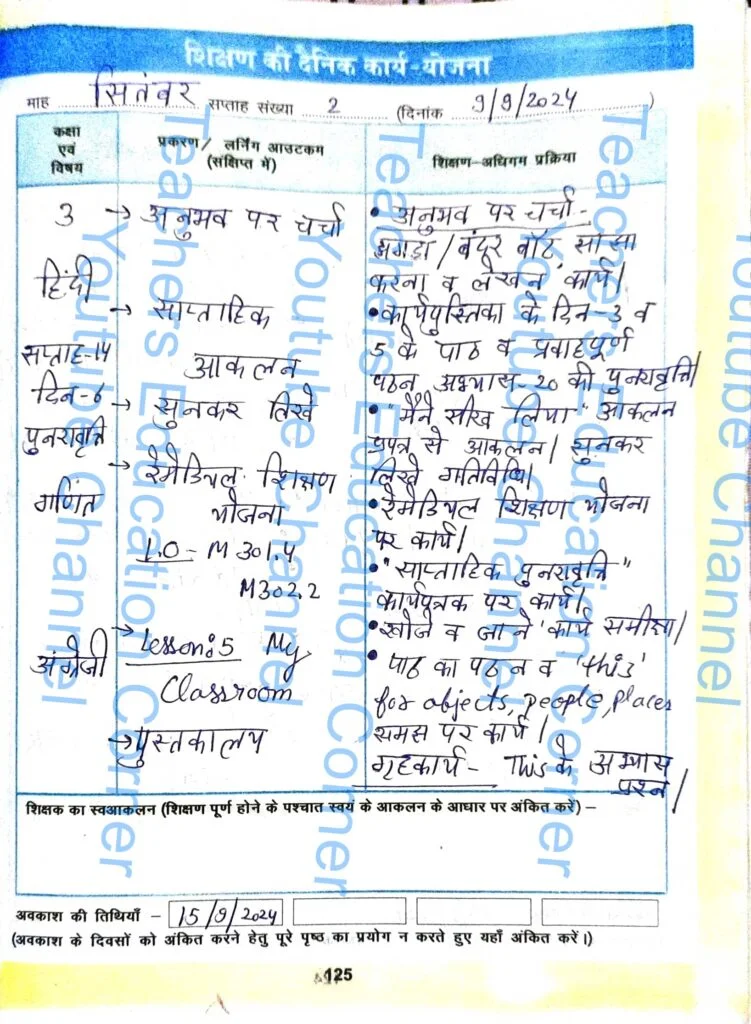 शिक्षण की दैनिक कार्य-योजना
माह सितंबर सप्ताह संख्या 2 (दिनांक 9/9/2024)
कक्षा एवं विषय
प्रकरण/ लर्निंग आउटकम (संक्षिप्त में)
शिक्षण-अधिगम प्रक्रिया
3
हिंदी
सप्ताह-14
दिन-6
पुनरावृत्ति
गणित
अंग्रेजी
→ अनुभव पर चर्चा
→ साप्ताहिक
आकलन
→ सुनकर लिखे
→ रेमेडियल शिक्षण
योजना
L.O - M 301.4
M302.2
→ Lesson:5 My
Classroom
→ पुस्तकालय
• अनुभव पर चर्चा -
झगड़ा / बंदर बाँट साझा
करना व लेखन कार्य।
• कार्यपुस्तिका के दिन-3 व
5 के पाठ व प्रवाहपूर्ण
पठन अभ्यास-20 की पुनरावृत्ति।
• "मैंने सीख लिया" आकलन
प्रपत्र से आकलन। सुनकर
लिखे गतिविधि।
• रेमेडियल शिक्षण योजना
पर कार्य।
• "साप्ताहिक पुनरावृत्ति"
कार्यपत्रक पर कार्य।
• खोजे व जाने कार्य समीक्षा।
• पाठ का पठन व 'this'
for objects, people, places
समझ पर कार्य।
गृहकार्य - This के अभ्यास
प्रश्न।
शिक्षक का स्वआकलन (शिक्षण पूर्ण होने के पश्चात स्वयं के आकलन के आधार पर अंकित करें) –
अवकाश की तिथियाँ – 15/9/2024
(अवकाश के दिवसों को अंकित करने हेतु पूरे पृष्ठ का प्रयोग न करते हुए यहाँ अंकित करें।)
125
Teachers Education Corner
Youtube Channel
Teachers Education Corner
Youtube Channel
Teachers Education Corner
Youtube Channel